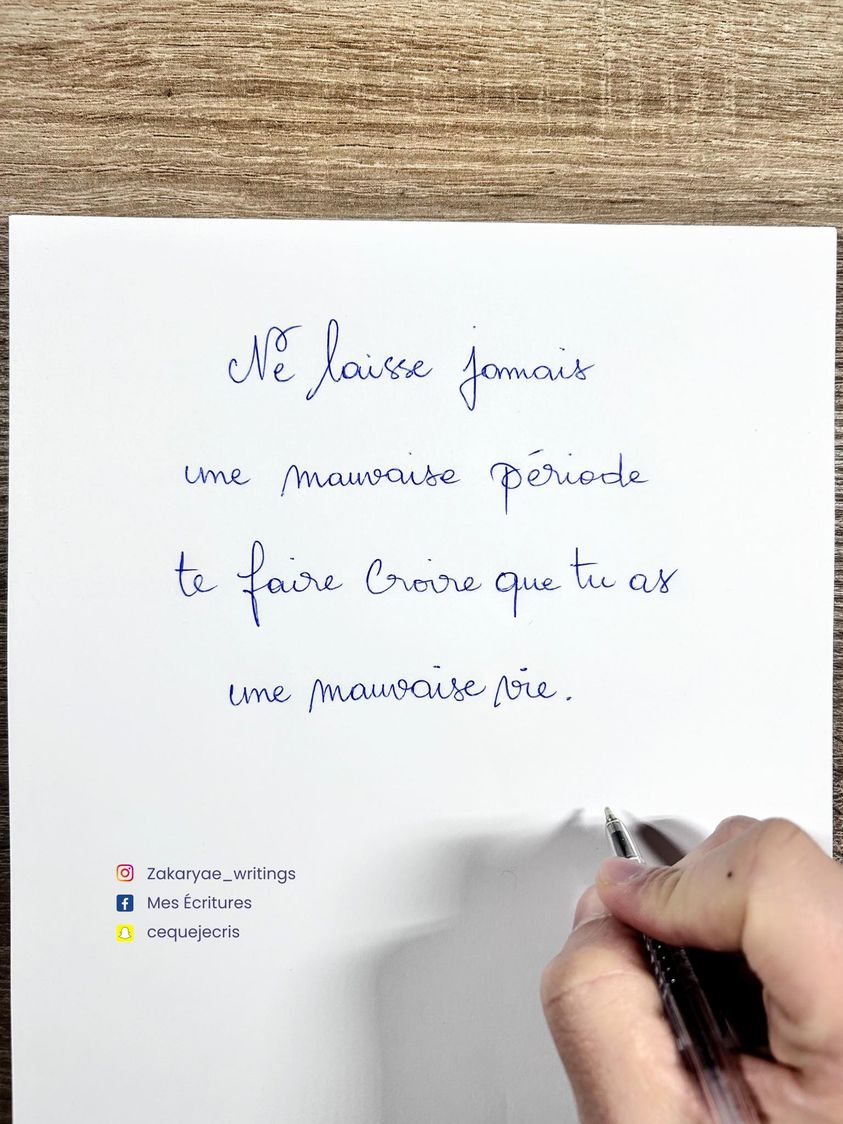 Ne laisse jamais
une mauvaise période
te faire Croire que tu as
une mauvaise vie.
Zakaryae_writings
Mes Écritures
cequejecris